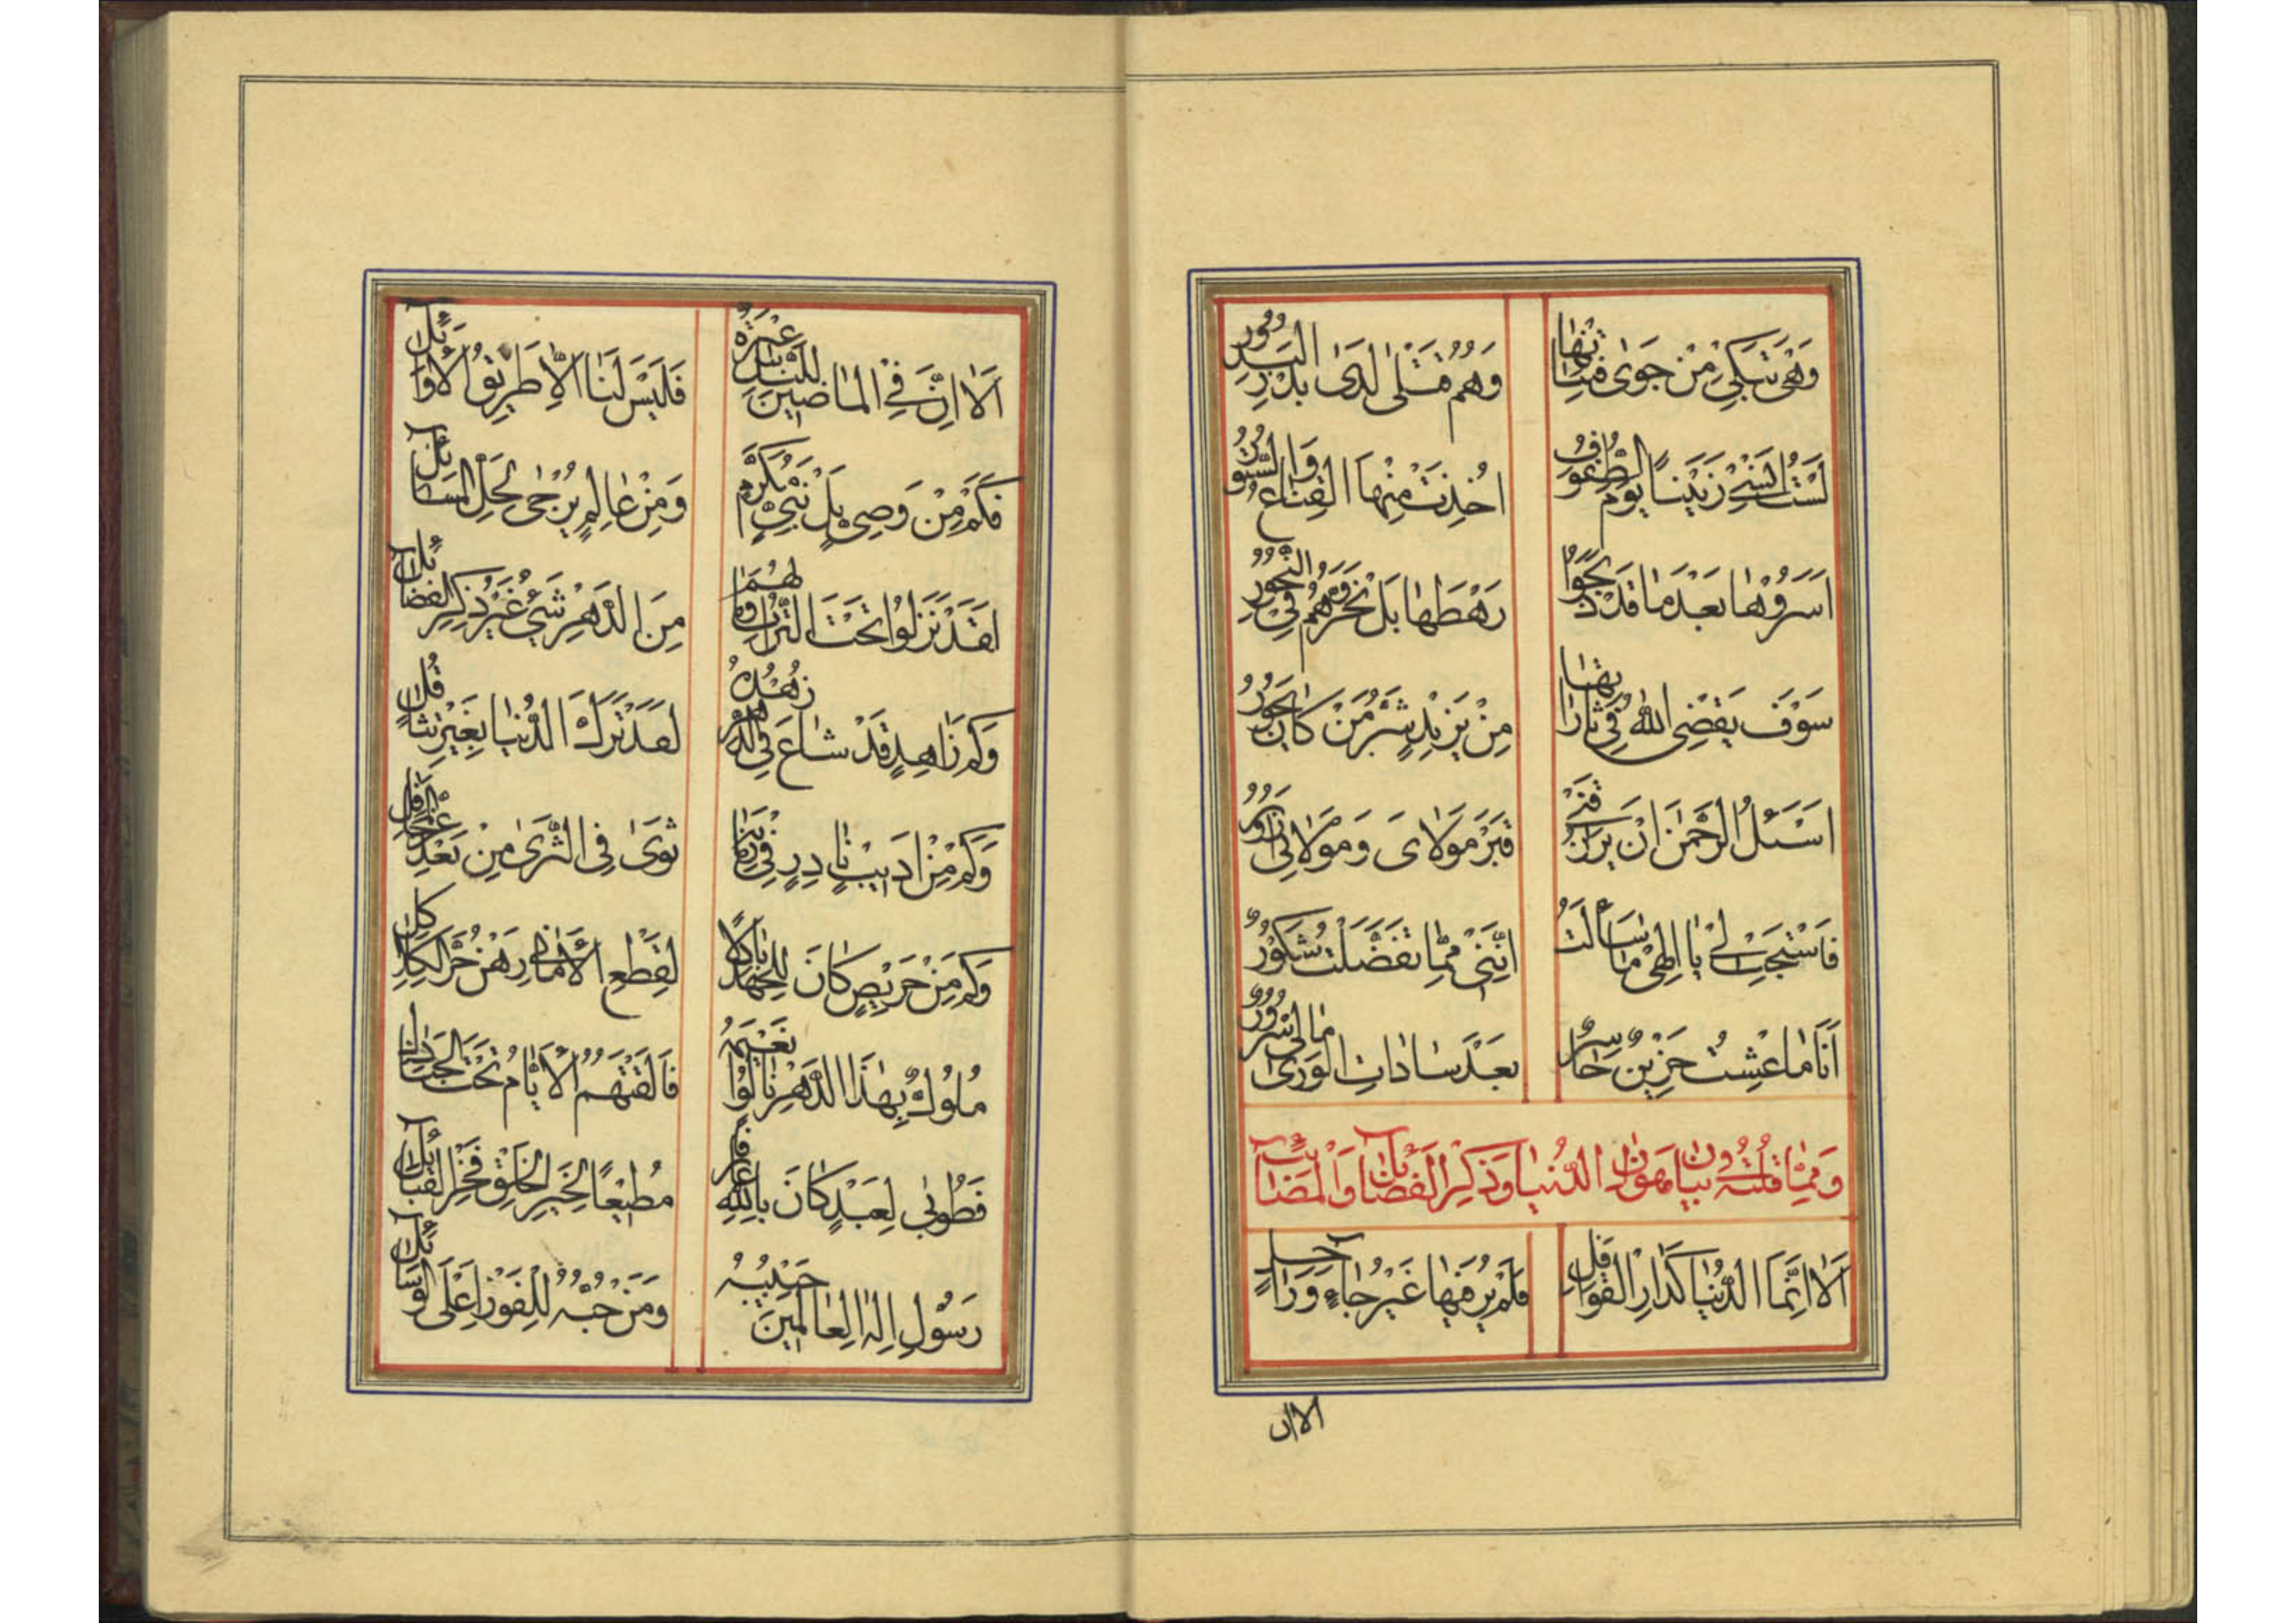 وَهْیَ تَبْکِی مِنْ جَوٰی فِتْیٰانِهٰا
وَهُمُ قَتْلٰی لَدٰی بَدْرِ الْبُدُورُ
لَسْتُ اَنْسٰی زَیْنَبًا یَوْمَ الطُّفُوفِ
اُخِذَتْ مِنْهَا الْقِنٰاعُ وَالسُّتُورُ
اَسَرُوهٰا بَعْدَ مٰا قَدْ ذَبَحُوا
رَهْطَهٰا بَلْ نَحَرُوهُمْ فِی النُّحُورُ
سَوْفَ یَقْضِی اللّٰهُ فِی ثٰارٰاتِهٰا
مِنْ یَزِیْدٍ شَرِّ مَنْ کٰانَ یَجُورُ
اَسْئَلُ الرَّحْمٰنَ اَنْ یَرْزُقَنِیْ
قَبْرَ مَوْلٰایَ وَمَوْلٰائِی اَزُورُ
فَاسْتَجِبْ لِیْ یٰا اِلٰهِیْ مٰا سَأَلْتُ
اِنَّنِیْ مِمّٰا تَفَضَّلْتَ شَکُورُ
اَنَا مٰا عِشْتُ حَزِیْنٌ خٰاسِرٌ
بَعْدَ سٰادٰاتِ الْوَرٰی مٰالِیْ سُرُورُ
وَمِمّٰا قُلْتُهُ فِیْ بَیٰانِ هَوٰانِ الدُّنْیٰا وَذِکْرِ الْفَضٰائِلِ وَالْمَصٰائِبِ
اَلٰا اِنَّمَا الدُّنْیٰا کَدٰارِ الْقَوٰافِلِ
فَلَمْ یُرَ فِیهٰا غَیْرُ جٰاءٍ وَرٰاحِلٍ
الا ان
اَلٰا اِنَّ فِی الْمٰاضِینَ لِلنّٰاسِ عِبْرَةُ
فَلَیْسَ لَنٰا اِلّٰا طَرِیْقُ الْاَوٰائِلِ
فَکَمْ مِنْ وَصِیٍّ بَلْ نَبِیٍّ مُکَرَّمٍ
وَمِنْ عٰالِمٍ یُرْجٰی لِحَلِّ الْمَسٰائِلِ
لَقَدْ نَزَلُوا تَحْتَ التُّرٰابِ وَمٰا لَهُمْ
مِنَ الدَّهْرِ شَیْءٌ غَیْرُ ذِکْرِ الْفَضٰائِلِ
وَکَمْ زٰاهِدٍ قَدْ شٰاعَ فِی الدَّهْرِ زُهْدُهُ
لَقَدْ تَرَكَ الدُّنْیٰا بِغَیْرِ تَثٰاقُلِ
وَکَمْ مِنْ اَدِیْبٍ نٰادِرٍ فِی زَمٰانِنٰا
ثَوٰی فِی الثَّرٰی مِنْ بَعْدِ عِزِّ الْمَحٰافِلِ
وَکَمْ مِنْ حَرِیْصٍ کٰانَ لِلْجُهْدِ بٰاکِلًا
لِقَطْعِ الْاَمٰانِی رَهْنُ حَرِّ الْکَلٰاکِلِ
مُلُوكٌ بِهٰذَا الدَّهْرِ نٰالُوا نَعِیْمَهُ
فَالْقَتْهُمُ الْاَیّٰامُ تَحْتَ الْجَنٰادِلِ
فَطُوبٰی لِعَبْدٍ کٰانَ بِاللّٰهِ عٰارِفٍ
مُطِیْعًا لِخَیْرِ الْخَلْقِ فَخْرِ الْقَبٰائِلِ
رَسُولِ اِلٰهِ الْعٰالَمِینَ حَبِیْبُهُ
وَمَنْ حُبُّهُ لِلْفَوْزِ اَعْلَی الْوَسٰائِلِ